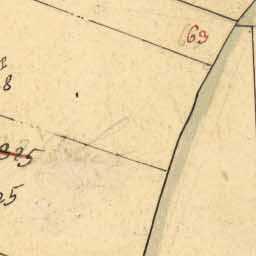 63
8
925
25